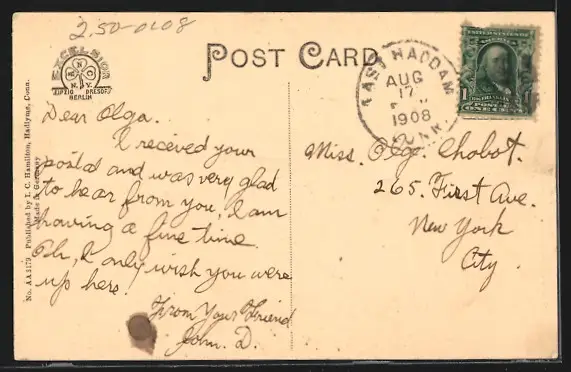 2.50-0608
POST CARD
EXCELSIOR
N.Y.
LEIPZIG DRESDEN
BERLIN
EAST HADDAM
AUG
17
1908
CONN.
POSTAGE
ONE CENT
Dear Olga.
I received your
postal and was very glad
to hear from you, I am
having a fine time.
Oh, I only wish you were
up here.
From Your Friend
John. D.
Miss. Olga. Chobot.
265. First Ave.
New York
City.
No. AA5179 Published by I. C. Hamilton, Hadlyme, Conn.
Made in Germany